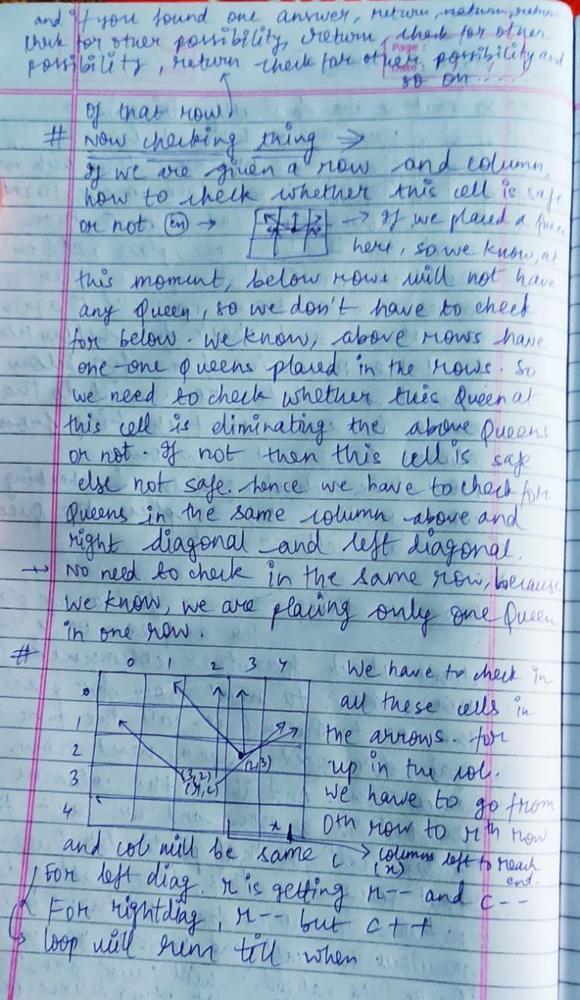 and if you found one answer, return, return, return
check for other possibility, return, check for other
possibility, return check for other possibility and
so on....
Page:
Date:
of that row
# Now checking thing ⇒
If we are given a row and column,
how to check whether this cell is safe
or not. (Ex) → → If we placed a Queen
here, so we know, at
this moment, below rows will not have
any Queen, so we don't have to check
for below. We know, above rows have
one-one Queens placed in the rows. So
we need to check whether this Queen at
this cell is eliminating the above Queens
or not. If not then this cell is safe
else not safe. hence we have to check for
Queens in the same column above and
right diagonal and left diagonal.
→ No need to check in the same row, because
we know, we are placing only one Queen
in one row.
# 0 1 2 3 4
0
1
2
3
4
(2,3)
(3,2)
(r,c)
x
We have to check in
all these cells in
the arrows. for
up in the col.
we have to go from
0th row to rth row
and col will be same c. → columns left to reach
(x) end.
For left diag. r is getting r-- and c--
For right diag, r-- but c++.
→ loop will run till when